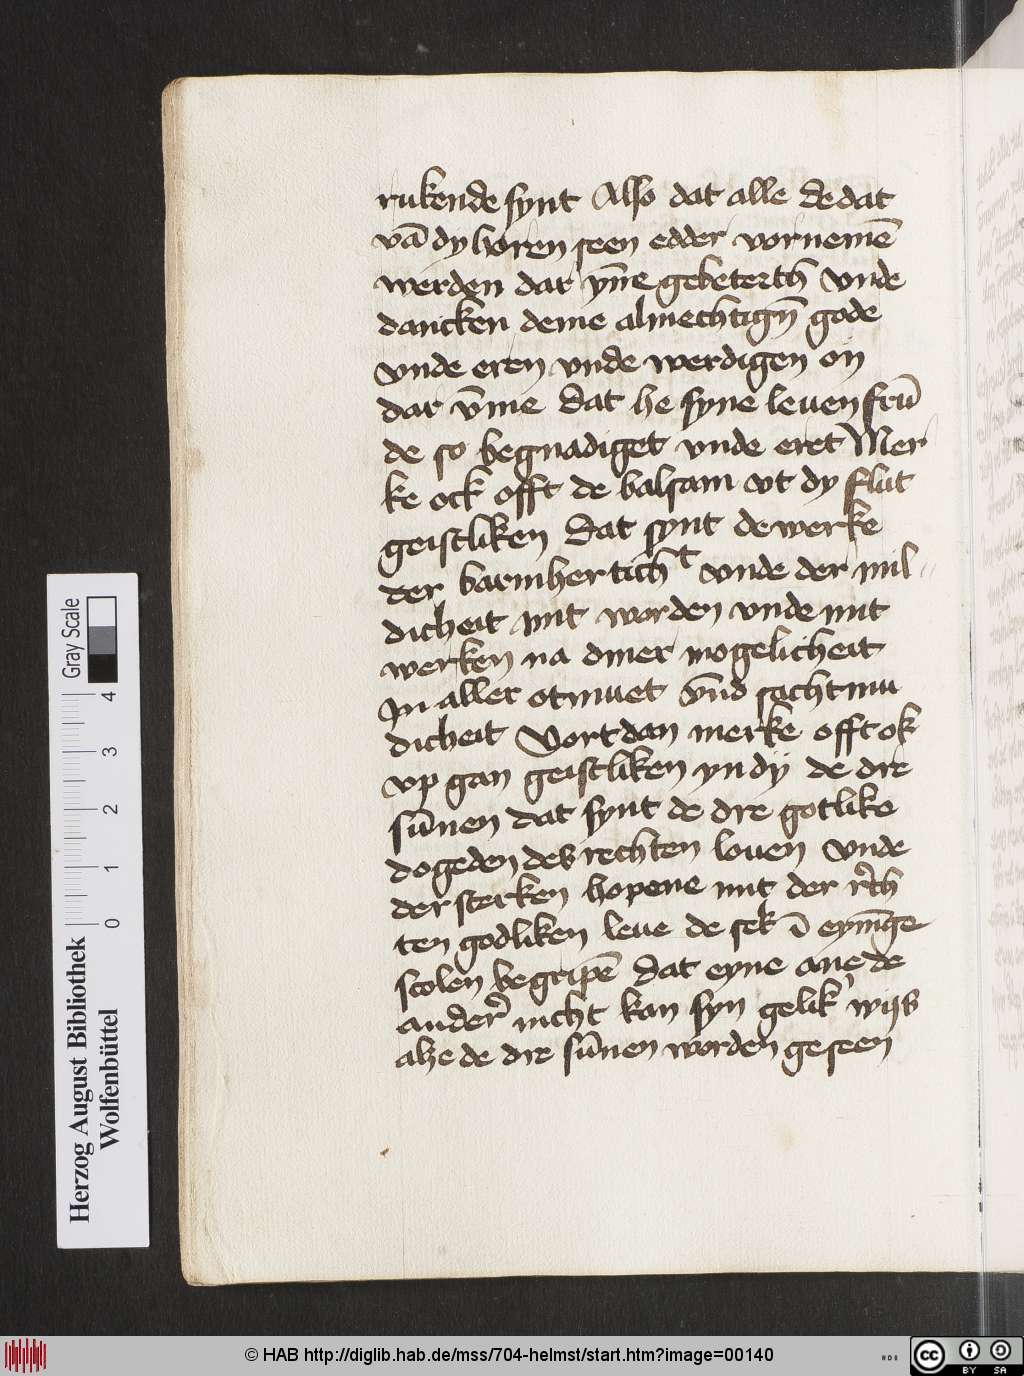 rukende synt Also dat alle de dat
vā dy horen seen edder vornemē
werden dar yn̄e gebeterth vnde
dancken deme almechtign̄ gode
vnde eren vnde werdigen on
dar v̄me dat he syne leuen frū
de so begnadiget vnde eret Mer
ke ock offt de balsam vt dy flut
geistliken dat synt de werke
der barmherticht vnde der mil
dicheit mit worden vnde mit
werken na diner mogelicheit
In aller otmuet vn̄d sachtmu
dicheit Vort dan merke offt ok
vp gan geistliken yn dy de dre
sūnen dat synt de dre gotlike
dogeden des rechten louen vnde
der sterken hopene mit der rech
ten godliken leue de sek ī eynn̄ge
scolen begripē dat eyne ane de
ander nicht kan syn gelik wijs
alze de dre sūnen worden geseen
Herzog August Bibliothek
Wolfenbüttel
Gray Scale
0 1 2 3 4
© HAB http://diglib.hab.de/mss/704-helmst/start.htm?image=00140
HAB
cc BY SA